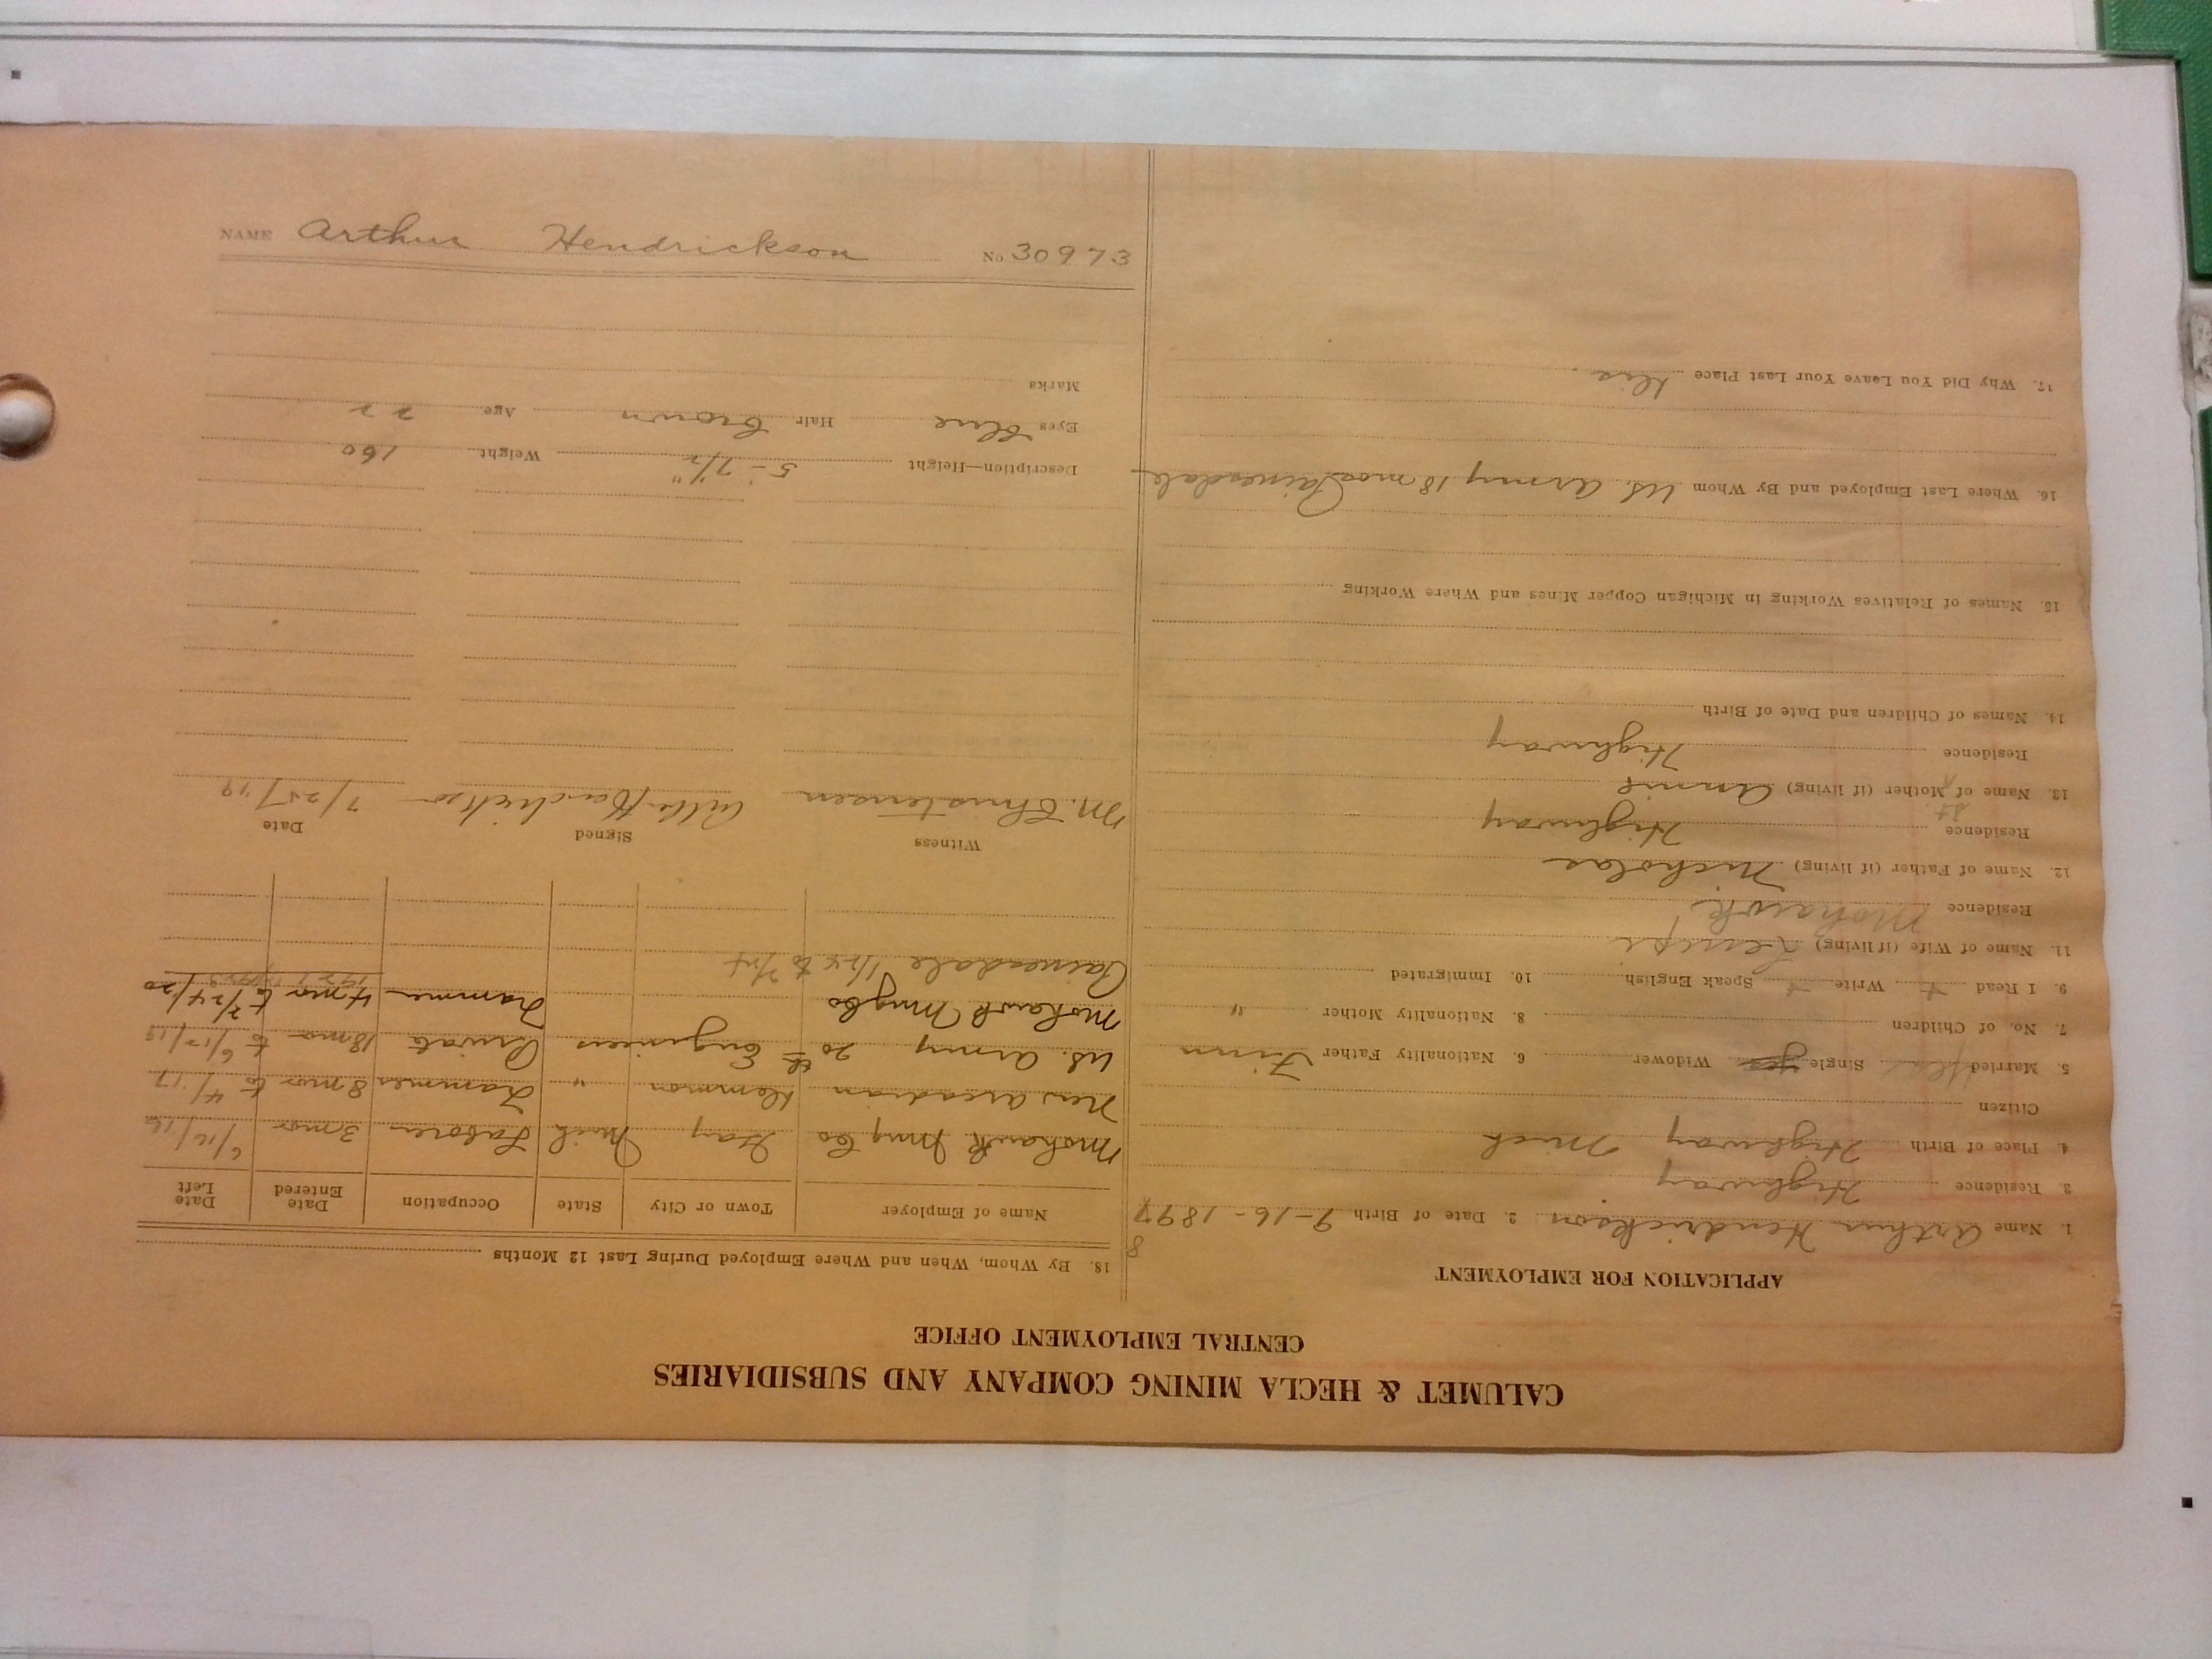 CALUMET & HECLA MINING COMPANY AND SUBSIDIARIES
CENTRAL EMPLOYMENT OFFICE
APPLICATION FOR EMPLOYMENT
1. Name Arthur Hendrickson 2. Date of Birth 9-16-1897
8
3. Residence Highway
4. Place of Birth Highway Mich
Citizen
5. Married Yes Single yes Widower 6. Nationality Father Finn
7. No. of Children 8. Nationality Mother "
9. I Read + Write + Speak English 10. Immigrated
11. Name of Wife (if living)
Residence Mohawk
12. Name of Father (if living) Nicholas
Residence Highway
13. Name of Mother (if living) Annie
Residence Highway
14. Names of Children and Date of Birth
15. Names of Relatives Working in Michigan Copper Mines and Where Working
16. Where Last Employed and By Whom U.S. Army 18 mos Painesdale
17. Why Did You Leave Your Last Place Dis.
18. By Whom, When and Where Employed During Last 12 Months
Name of Employer Town or City State Occupation Date Entered Date Left
Mohawk Mng Co Gay Mich Laborer 3 mos 6/16/16
New Arcadian " Trammer 8 mos to 4/17
U.S. Army 20th Engineers Private 18 mos to 6/17/19
Mohawk Mng Co Trammer 4 mos to 7/24/20
Painesdale 1/24 to
Witness Signed Date
M. Christensen 7/25/19
Description—Height 5-7½" Weight 160
Eyes Blue Hair Brown Age 22
Marks
NAME Arthur Hendrickson No 30973